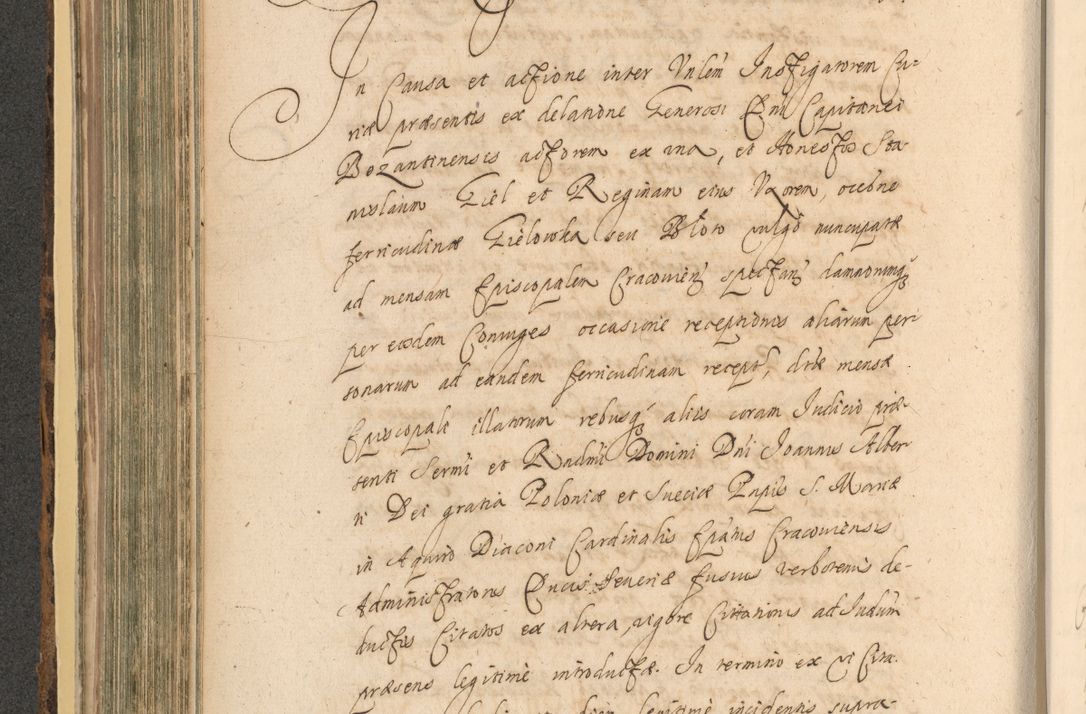 In Causa et actione inter Vnlem Instigatorem Cu-
riæ præsentis ex delatione Generosi Dni Capitanei
Bozantinensis actorem ex vna, et Honestos Sta-
nislaum Giel et Reginam eius Vxorem, ocebne
ferricudinæ Gielowska seu Bloto vulgo nuncupatæ
ad mensam Episcopalem Cracovien spectan damnorumq
per eosdem Coniuges occasione receptionis aliarum per
sonarum ad eandem ferricudinam recept, dictæ mensæ
Episcopali illatorum rebusq aliis coram Iudicio præ-
senti Sermi et Rndmi Domini Dni Ioannis Alber
ti Dei gratia Poloniæ et Sueciæ Prpis S. Mariæ
in Aquiro Diaconi Cardinalis Epatus Cracoviensis
Administratoris Ducis Severiæ fusius verbotenus de-
ductis Citatos ex altera, vigore Citationis ad Iudium
præsens legitimè introductæ. In termino ex vi Cita-
legitime incidentis supra-